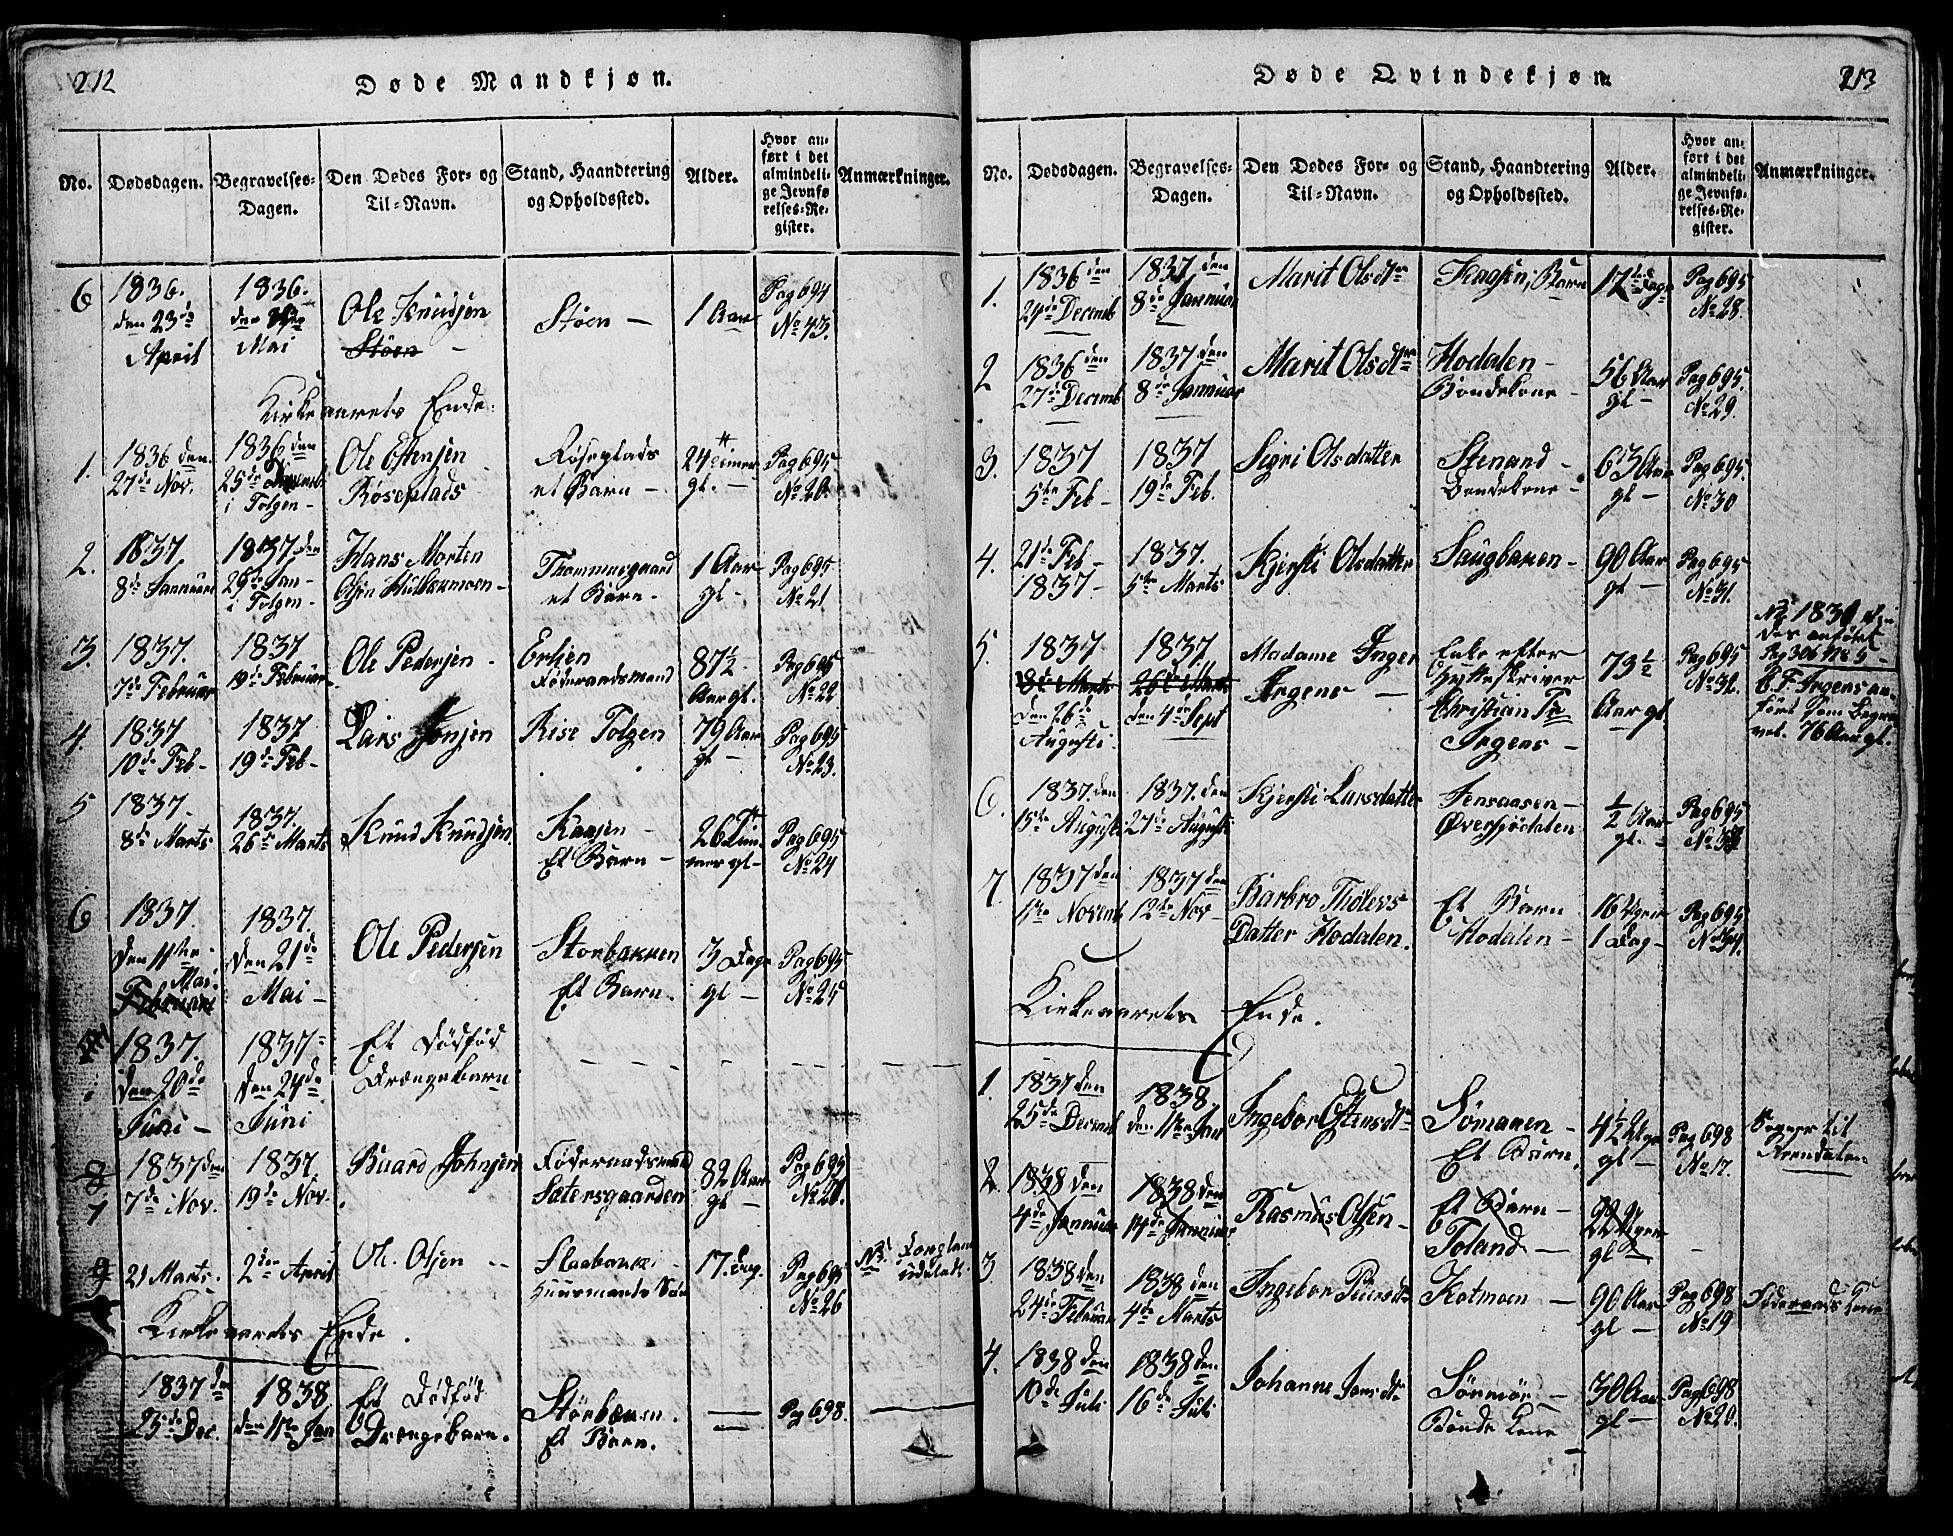 212
Døde Mandkjøn.
No.
Dødsdagen.
Begravelses-
Dagen.
Den Dødes For- og
Til-Navn.
Stand, Haandtering
og Opholdssted.
Alder.
Hvor an-
ført i det
almindeli-
ge Jevnfø-
relses-Re-
gister.
Anmærkninger.
6
1836.
den 23de
April
1836.
den
Mai
Ole Knudsen
Støen
Støen —
1 Aar
Pag 694
No 43.
Kirkeaarets Ende.
1.
1836 den
27de Nov.
1836 den
25de
i Tolgen —
Ole Estensen
Røseplads
Røseplads
et Barn —
24 Timer
gl. —
Pag 695
No 20.
2.
1837.
8de Januari
1837 den
29de Jan —
i Tolgen —
Hans Morten
Olsen
et Barn —
1 Aar
gl —
Pag 695
No 21
3.
1837.
7de Februar
1837
19de Februar
Ole Pedersen
Føderaadsmand
87½
Aar gl.
Pag 695
No 22
4.
1837
10de Feb —
1837
19de Feb —
Lars Jonsen
Rise Tolgen
79 Aar
gl —
Pag 695
No 23.
5
1837
8de Marts
1837.
26de Marts
Knud Knudsen
Et Barn —
26 Tim
mer gl —
Pag 695
No 24
6
1837
den 11te
Mai
Februari
1837.
den 21de
Mai —
Ole Pedersen
Storbakken
Et Barn.
3 Dage
gl —
Pag 695
No 25
1837.
den 20de
Juni —
1837
den 24de
Juni
Et Dødfød
Drængebarn
8
7
1837 den
7de Nov.
1837.
19de Nov.
Baard Johnsen
Føderaadsmand
Sætersgaarden
82 Aar
gl —
Pag 695
No
9
21 Marts.
2den April
Ole Olsen
Huusmands Søn
17. Dag.
Pag 695
No 26
NB
Kirkeaarets Ende.
1837 den
23de Dec.
1838
den 1ste Jan
Et Dødfød
Drængebarn.
Et Barn.
Pag 698.
213
Døde Qvindekjøn
No.
Dødsdagen.
Begravelses-
Dagen.
Den Dødes For- og
Til-Navn.
Stand, Haandtering
og Opholdssted.
Alder.
Hvor an-
ført i det
almindeli-
ge Jevnfø-
relses-Re-
gister.
Anmærkninger.
1.
1836 den
24de Decemb
1837 den
8de Januar
Marit Olsdtr
Barn
17 Dage
Pag 695
No 28.
2
1836 den
27de Decemb
1837 den
8de Januar
Marit Olsdtr
Hodalen —
Bondekone —
56 Aar
gl —
Pag 695.
No 29.
3.
1837
5te Feb —
1837
19de Feb.
Sigri Olsdatter
Bondekone —
63 Aar
gl —
Pag 695
No 30
4.
21de Feb —
1837 —
1837.
5te Marts
Kjersti Olsdatter
90 Aar
gl —
Pag 695
No 31.
5.
1837
8de Marts
den 26de
Augusti
1837.
26de Marts
den 4de Sept
Madame Inger
Irgens —
Enke efter
Hytteskriver
Christian Fr
Irgens —
73½
Aar gl.
Pag 695
No 32.
des anført
Pag 306 No 5 —
C. F. Irgens an-
ført som Begra
vet. 76 Aar gl.
6.
1837. den
15de Augusti
1837. den
27de Augusti
Kjersti Larsdatter
Jensaasen —
Øversjødalen
½ Aar
gl. —
Pag 695
No
7.
1837 den
1ste Novemb
1837 den
12te Nov —
Barbro Thølevs
Datter Hodalen.
Et Barn
Hodalen —
16 Uger
1 Dag —
Pag 695
No 34.
Kirkeaarets Ende.
1.
1837 den
25de Decemb
1838.
den 1ste Jan
Ingebor Estensdtr
Et Barn.
4½ Uger
gl —
Pag 698
No 17.
til
2.
1838 den
4de Januar
1838 den
14de Januar
Rasmus Olsen —
Et Barn —
Toland —
gl
3
1838 den
24de Februar
1838 den
4de Marts
Ingebor
Kotmoen —
90 Aar
gl —
Pag 698
No 19
Føderaads Kone
4.
1838 den
10de Juli
1838 den
16de Juli
Johanne Jonsdtr
Bonde Kone
30 Aar
gl —
Pag 698
No 20.